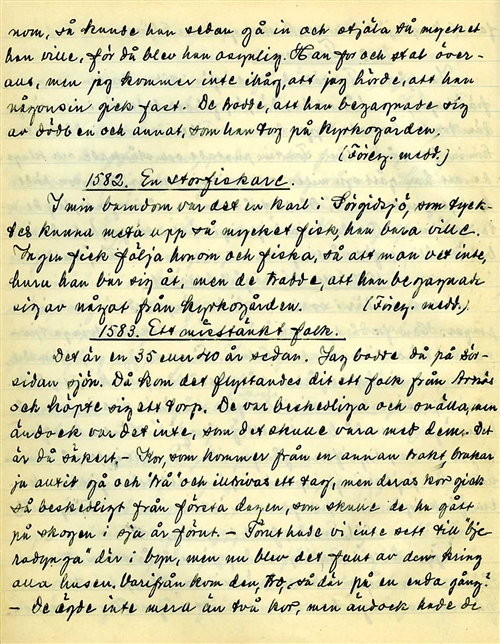 nom, så kunde han sedan gå in och stjäla så mycket
han ville, för då blev han osynlig. Han for och stal över-
allt, men jag kommer inte ihåg, att jag hörde, att han
någonsin gick fast. De trodde, att han begagnade sig
av dödben och annat, som han tog på kyrkogården.
(Föreg. medd.)
1582. En storfiskare.
I min barndom var det en karl i Sörgidsjö, som tyck-
tes kunna meta upp så mycket fisk, han bara ville.
Ingen fick följa honom och fiska, så att man vet inte,
huru han bar sig åt, men de trodde, att han begagnade
sig av något från kyrkogården. (Föreg. medd.)
1583. Ett misstänkt folk.
Det är en 35 eller 40 år sedan. Jag bodde då på sör-
sidan sjön. Då kom det flyttandes dit ett folk från Arnäs
och köpte sig ett torp. De var beskedliga och snälla, men
ändock var det inte, som det skulle vara med dem. Det
är då säkert. – Kor, som kommer från en annan trakt, brukar
ju alltid gå och "trå" och illtrivas ett tag, men deras kor gick
så beskedligt från första dagen, som skulle de ha gått
på skogen i sju år förut. – Förut hade vi inte sett till "bje
radynga" där i byn, men nu blev det fullt av den kring
alla husen. Varifrån kom den, tro, så där på en enda gång?
– De ägde inte mera än två kor, men ändock hade de